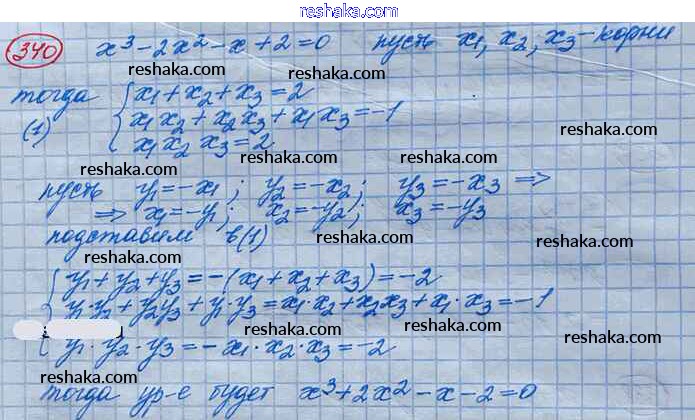 www.reshaka.com
340 x³ - 2x² - x + 2 = 0 пусть x₁, x₂, x₃ - корни
reshaka.com reshaka.com reshaka.com
тогда { x₁ + x₂ + x₃ = 2
(1) x₁x₂ + x₂x₃ + x₁x₃ = -1
x₁x₂x₃ = 2
reshaka.com reshaka.com reshaka.com
пусть y₁ = -x₁; y₂ = -x₂; y₃ = -x₃ ⇒
⇒ x₁ = -y₁; x₂ = -y₂; x₃ = -y₃
подставим в (1)
reshaka.com reshaka.com reshaka.com
{ y₁ + y₂ + y₃ = -(x₁ + x₂ + x₃) = -2
y₁·y₂ + y₂y₃ + y₁·y₃ = x₁·x₂ + x₂x₃ + x₁·x₃ = -1
y₁·y₂·y₃ = -x₁·x₂·x₃ = -2
reshaka.com reshaka.com reshaka.com
тогда ур-е будет x³ + 2x² - x - 2 = 0
www.reshaka.com